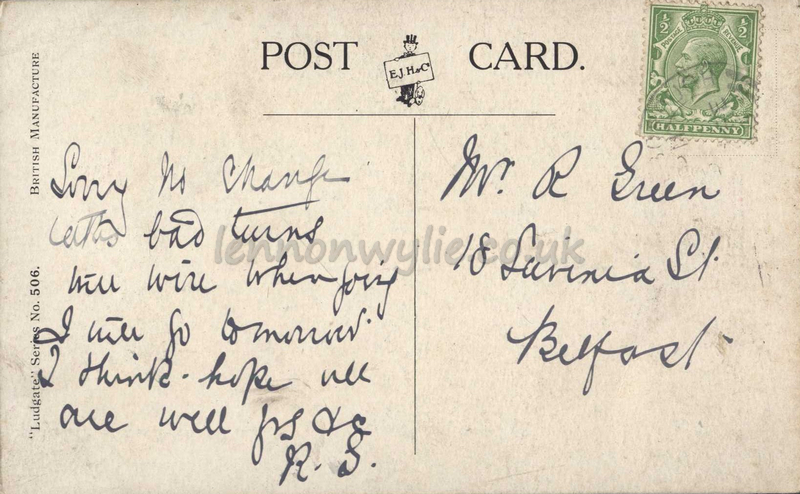 POST CARD.
E.J.H.&Co.
BRITISH MANUFACTURE
"Ludgate" Series No. 506.
½ ½
POSTAGE REVENUE
HALFPENNY
Sorry No Change
bad turns
will wire when going
I will go tomorrow
I think. hope all
are well yrs &c
R. S.
Mr. R Green
18 Slivenia St.
Belfast
lennonwylie.co.uk